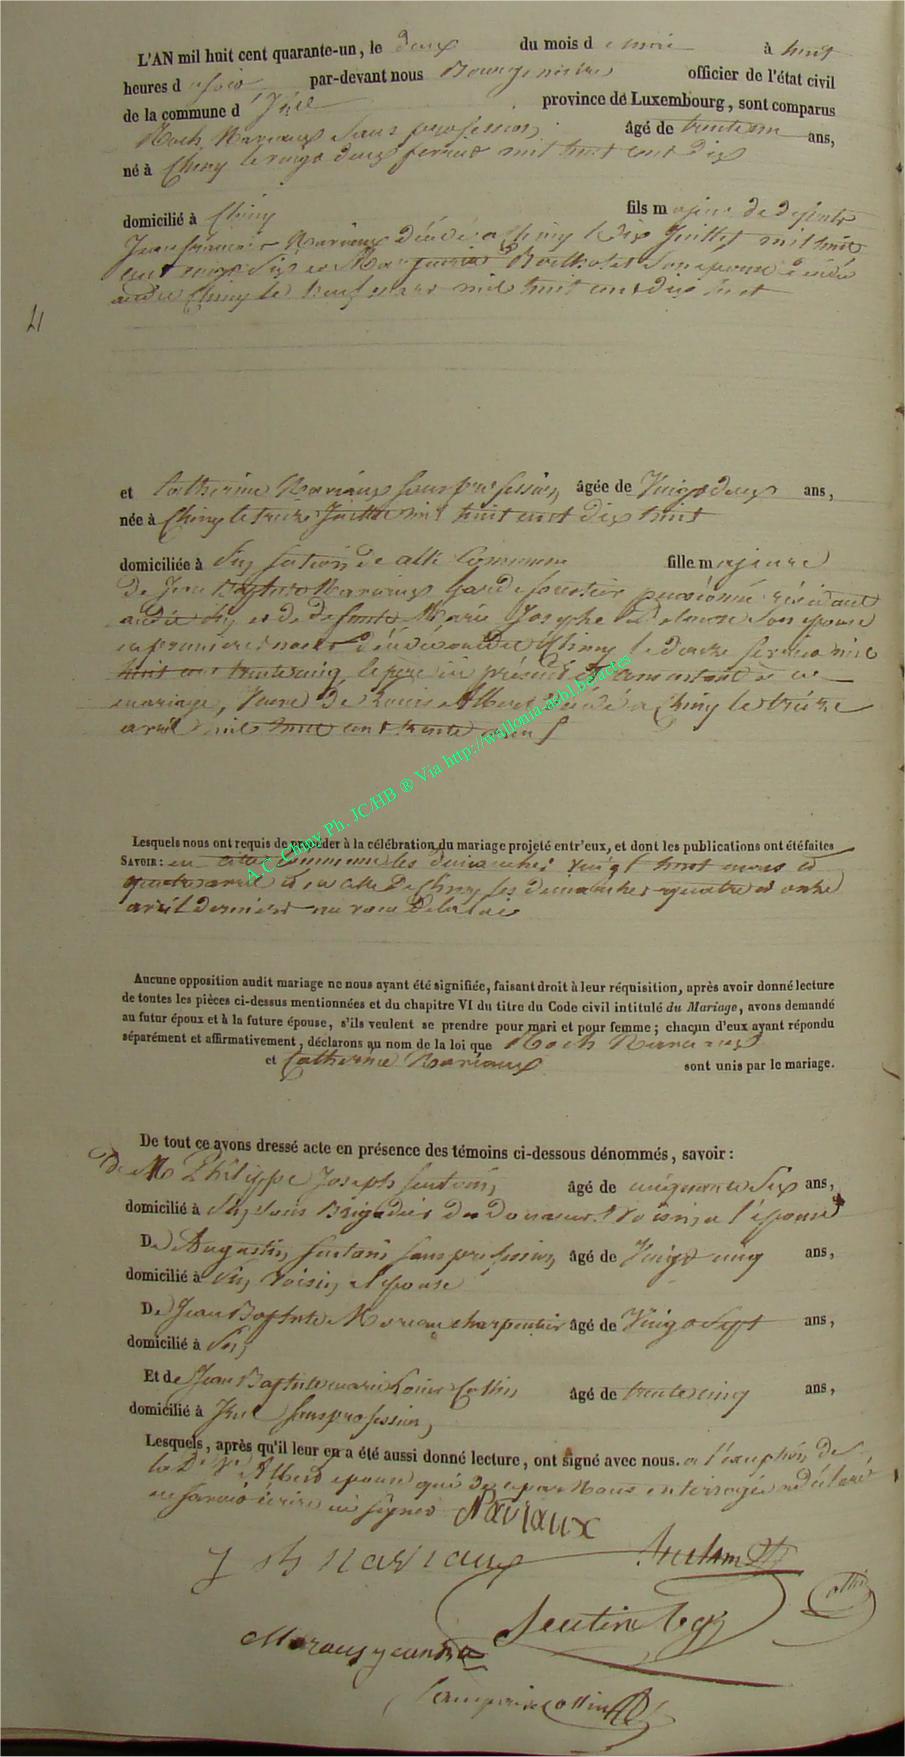 L'AN mil huit cent quarante-un, le deux du mois de mai à huit
heures du soir par-devant nous Bourgmestre officier de l'état civil
de la commune d' province de Luxembourg, sont comparus
Roch Naviaux Sans profession âgé de trente un ans,
né à Chiny le vingt deux fevrier mil huit cent dix
domicilié à Chiny fils majeur de defunts
Jean françois Naviaux Décédé a Chiny le dix Juillet mil huit
cent vingt six et son epouse décédée
audit Chiny le neuf mars mil huit cent dix huit
4
et Catherine Naviaux sans profession, âgée de Vingt deux ans,
née à Chiny le treize Juillet mil huit cent dix huit
domiciliée à section de cette Commune fille majeure
De Jean Baptiste Naviaux Garde forestier pensionné résidant
audit et de defunte Marie Josephe son epouse
en premiere noces décédée audit Chiny le douze fevrier mil
huit cent trente cinq, le pere ici présent et consentant à ce
mariage, Veuve De Louis Albert décédé a Chiny le treize
avril mil huit cent trente neuf
A.C. Chiny Ph. JC/HB ® Via http://wallonia-asbl.be/actes
Lesquels nous ont requis de procéder à la célébration du mariage projeté entr'eux, et dont les publications ont été faites
SAVOIR : en cette commune les dimanches vingt huit mars et
quatre avril et en celle De Chiny les dimanches quatre et onze
avril dernier
Aucune opposition audit mariage ne nous ayant été signifiée, faisant droit à leur réquisition, après avoir donné lecture
de toutes les pièces ci-dessus mentionnées et du chapitre VI du titre du Code civil intitulé du Mariage, avons demandé
au futur époux et à la future épouse, s'ils veulent se prendre pour mari et pour femme ; chacun d'eux ayant répondu
séparément et affirmativement, déclarons au nom de la loi que Roch Naviaux
et Catherine Naviaux sont unis par le mariage.
De tout ce avons dressé acte en présence des témoins ci-dessous dénommés, savoir :
De Mr Philippe Joseph âgé de cinquante six ans,
domicilié à sous Brigadier des Douanes Voisin a l'épouse
De Augustin sans profession, âgé de Vingt cinq ans,
domicilié à Voisin a l'épouse
De Jean Baptiste Moreau charpentier âgé de Vingt Sept ans,
domicilié à
Et de Jean Baptiste marie Louis Collin âgé de trente cinq ans,
domicilié à sans profession,
Lesquels, après qu'il leur en a été aussi donné lecture, ont signé avec nous. a l'exception de
la De Ve Albert epouse qui de ce par Nous interrogée a déclaré
ne savoir écrire ni signer Naviaux
J B Naviaux
Collin